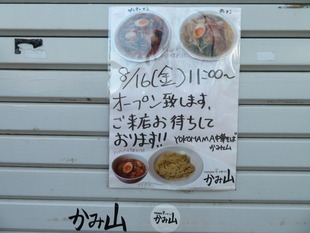 8/16(金)11:00〜
オープン致します。
ご来店お待ちして
おります!!
YOKOHAMA中華そば
かみ山
かみ山
かみ山
かみ山